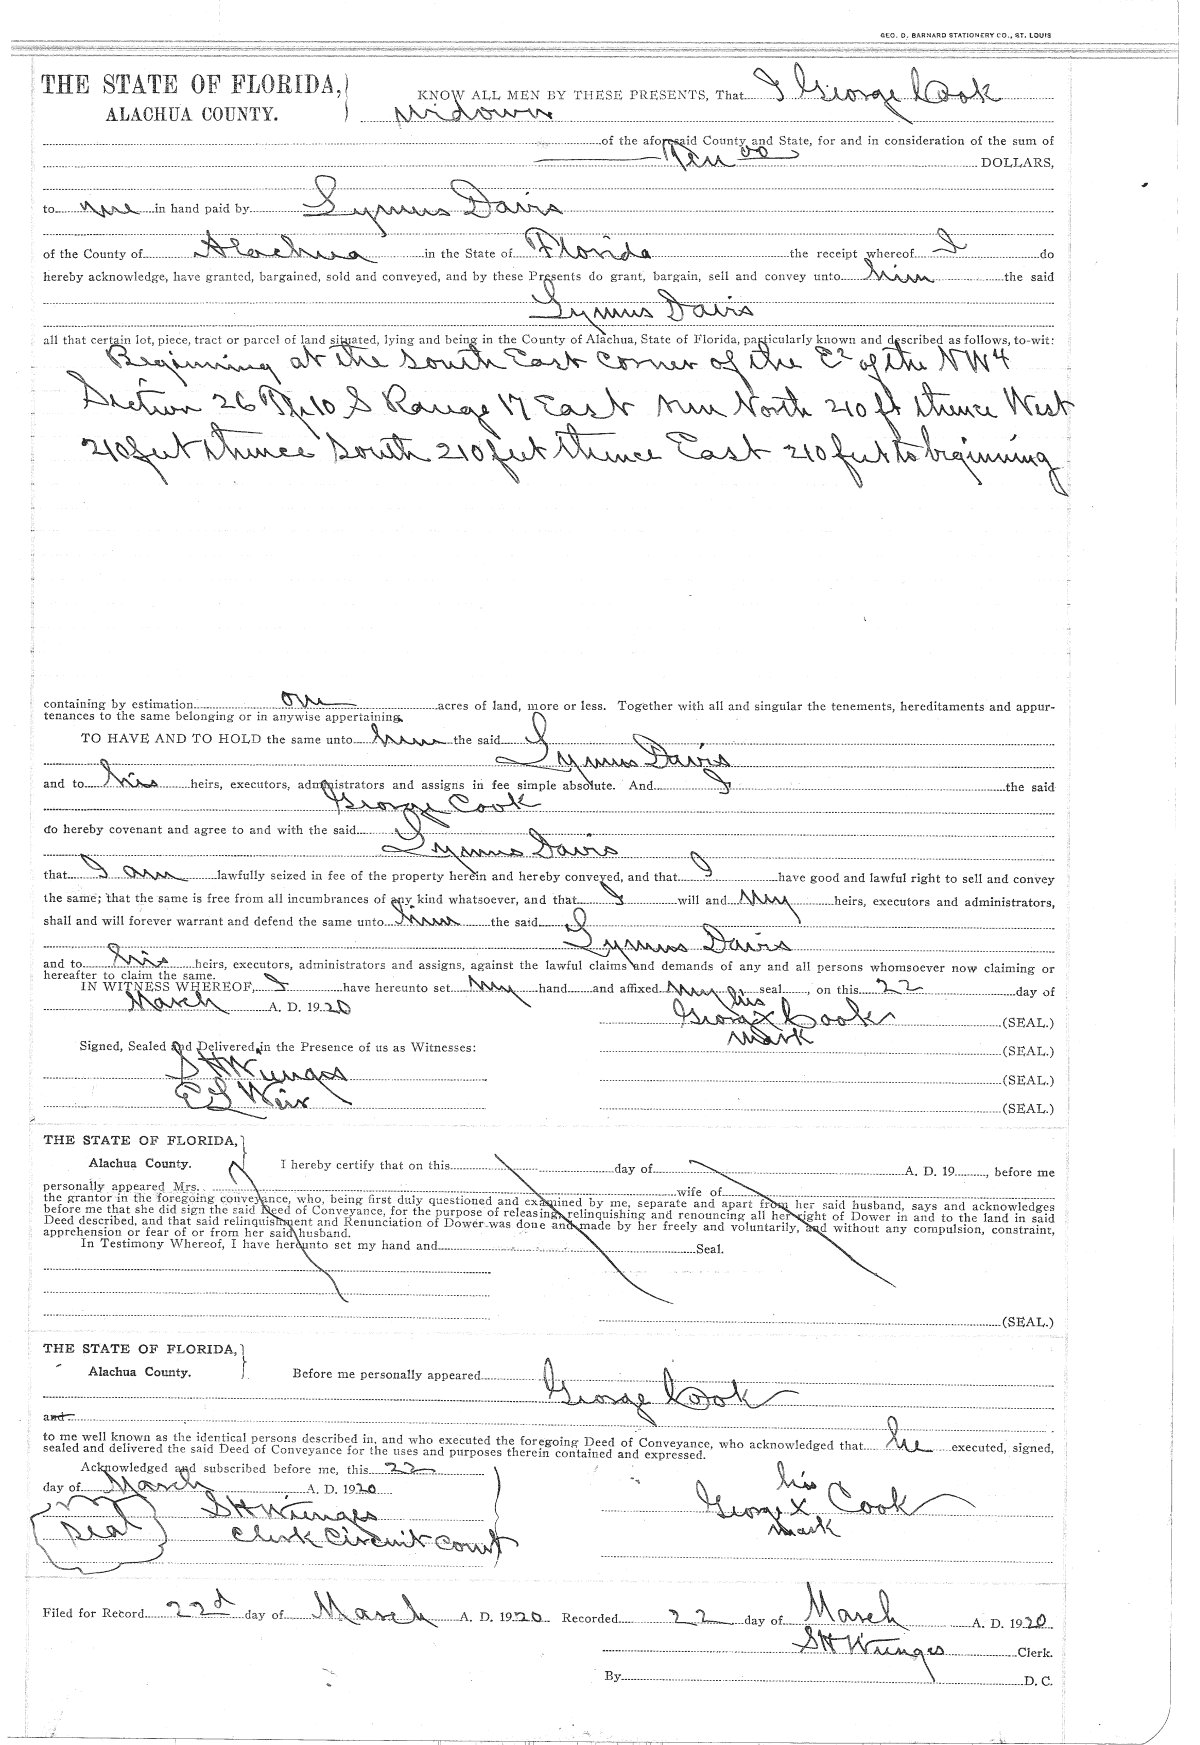 GEO. D. BARNARD STATIONERY CO., ST. LOUIS
THE STATE OF FLORIDA,
ALACHUA COUNTY.
KNOW ALL MEN BY THESE PRESENTS, That I George Cook
widower
of the aforesaid County and State, for and in consideration of the sum of
Ten 00 DOLLARS,
to me in hand paid by Lymus Davis
of the County of Alachua in the State of Florida the receipt whereof I do
hereby acknowledge, have granted, bargained, sold and conveyed, and by these Presents do grant, bargain, sell and convey unto him the said
Lymus Davis
all that certain lot, piece, tract or parcel of land situated, lying and being in the County of Alachua, State of Florida, particularly known and described as follows, to-wit:
Beginning at the South East corner of the E2 of the NW4
Section 26 Tp 10 S Range 17 East run North 210 ft thence West
210 feet thence South 210 feet thence East 210 feet to beginning
containing by estimation one acres of land, more or less. Together with all and singular the tenements, hereditaments and appur-
tenances to the same belonging or in anywise appertaining.
TO HAVE AND TO HOLD the same unto him the said
Lymus Davis
and to his heirs, executors, administrators and assigns in fee simple absolute. And I the said
George Cook
do hereby covenant and agree to and with the said
Lymus Davis
that I am lawfully seized in fee of the property herein and hereby conveyed, and that I have good and lawful right to sell and convey
the same; that the same is free from all incumbrances of any kind whatsoever, and that I will and my heirs, executors and administrators,
shall and will forever warrant and defend the same unto him the said
Lymus Davis
and to his heirs, executors, administrators and assigns, against the lawful claims and demands of any and all persons whomsoever now claiming or
hereafter to claim the same.
IN WITNESS WHEREOF, I have hereunto set my hand and affixed my seal, on this 22 day of
March A. D. 1920
his
George X Cook (SEAL.)
mark
(SEAL.)
Signed, Sealed and Delivered in the Presence of us as Witnesses:
S H Wienges (SEAL.)
E L Weir (SEAL.)
THE STATE OF FLORIDA,
Alachua County.
I hereby certify that on this day of A. D. 19, before me
personally appeared Mrs. wife of
the grantor in the foregoing conveyance, who, being first duly questioned and examined by me, separate and apart from her said husband, says and acknowledges
before me that she did sign the said Deed of Conveyance, for the purpose of releasing, relinquishing and renouncing all her right of Dower in and to the land in said
Deed described, and that said relinquishment and Renunciation of Dower was done and made by her freely and voluntarily, and without any compulsion, constraint,
apprehension or fear of or from her said husband.
In Testimony Whereof, I have hereunto set my hand and Seal.
(SEAL.)
THE STATE OF FLORIDA,
Alachua County.
Before me personally appeared George Cook
and
to me well known as the identical persons described in, and who executed the foregoing Deed of Conveyance, who acknowledged that he executed, signed,
sealed and delivered the said Deed of Conveyance for the uses and purposes therein contained and expressed.
Acknowledged and subscribed before me, this 22
day of March A. D. 1920
his
George X Cook
mark
Seal
S H Wienges
Clerk Circuit Court
Filed for Record 22d day of March A. D. 1920 Recorded 22 day of March A. D. 1920
S H Wienges Clerk.
By D. C.